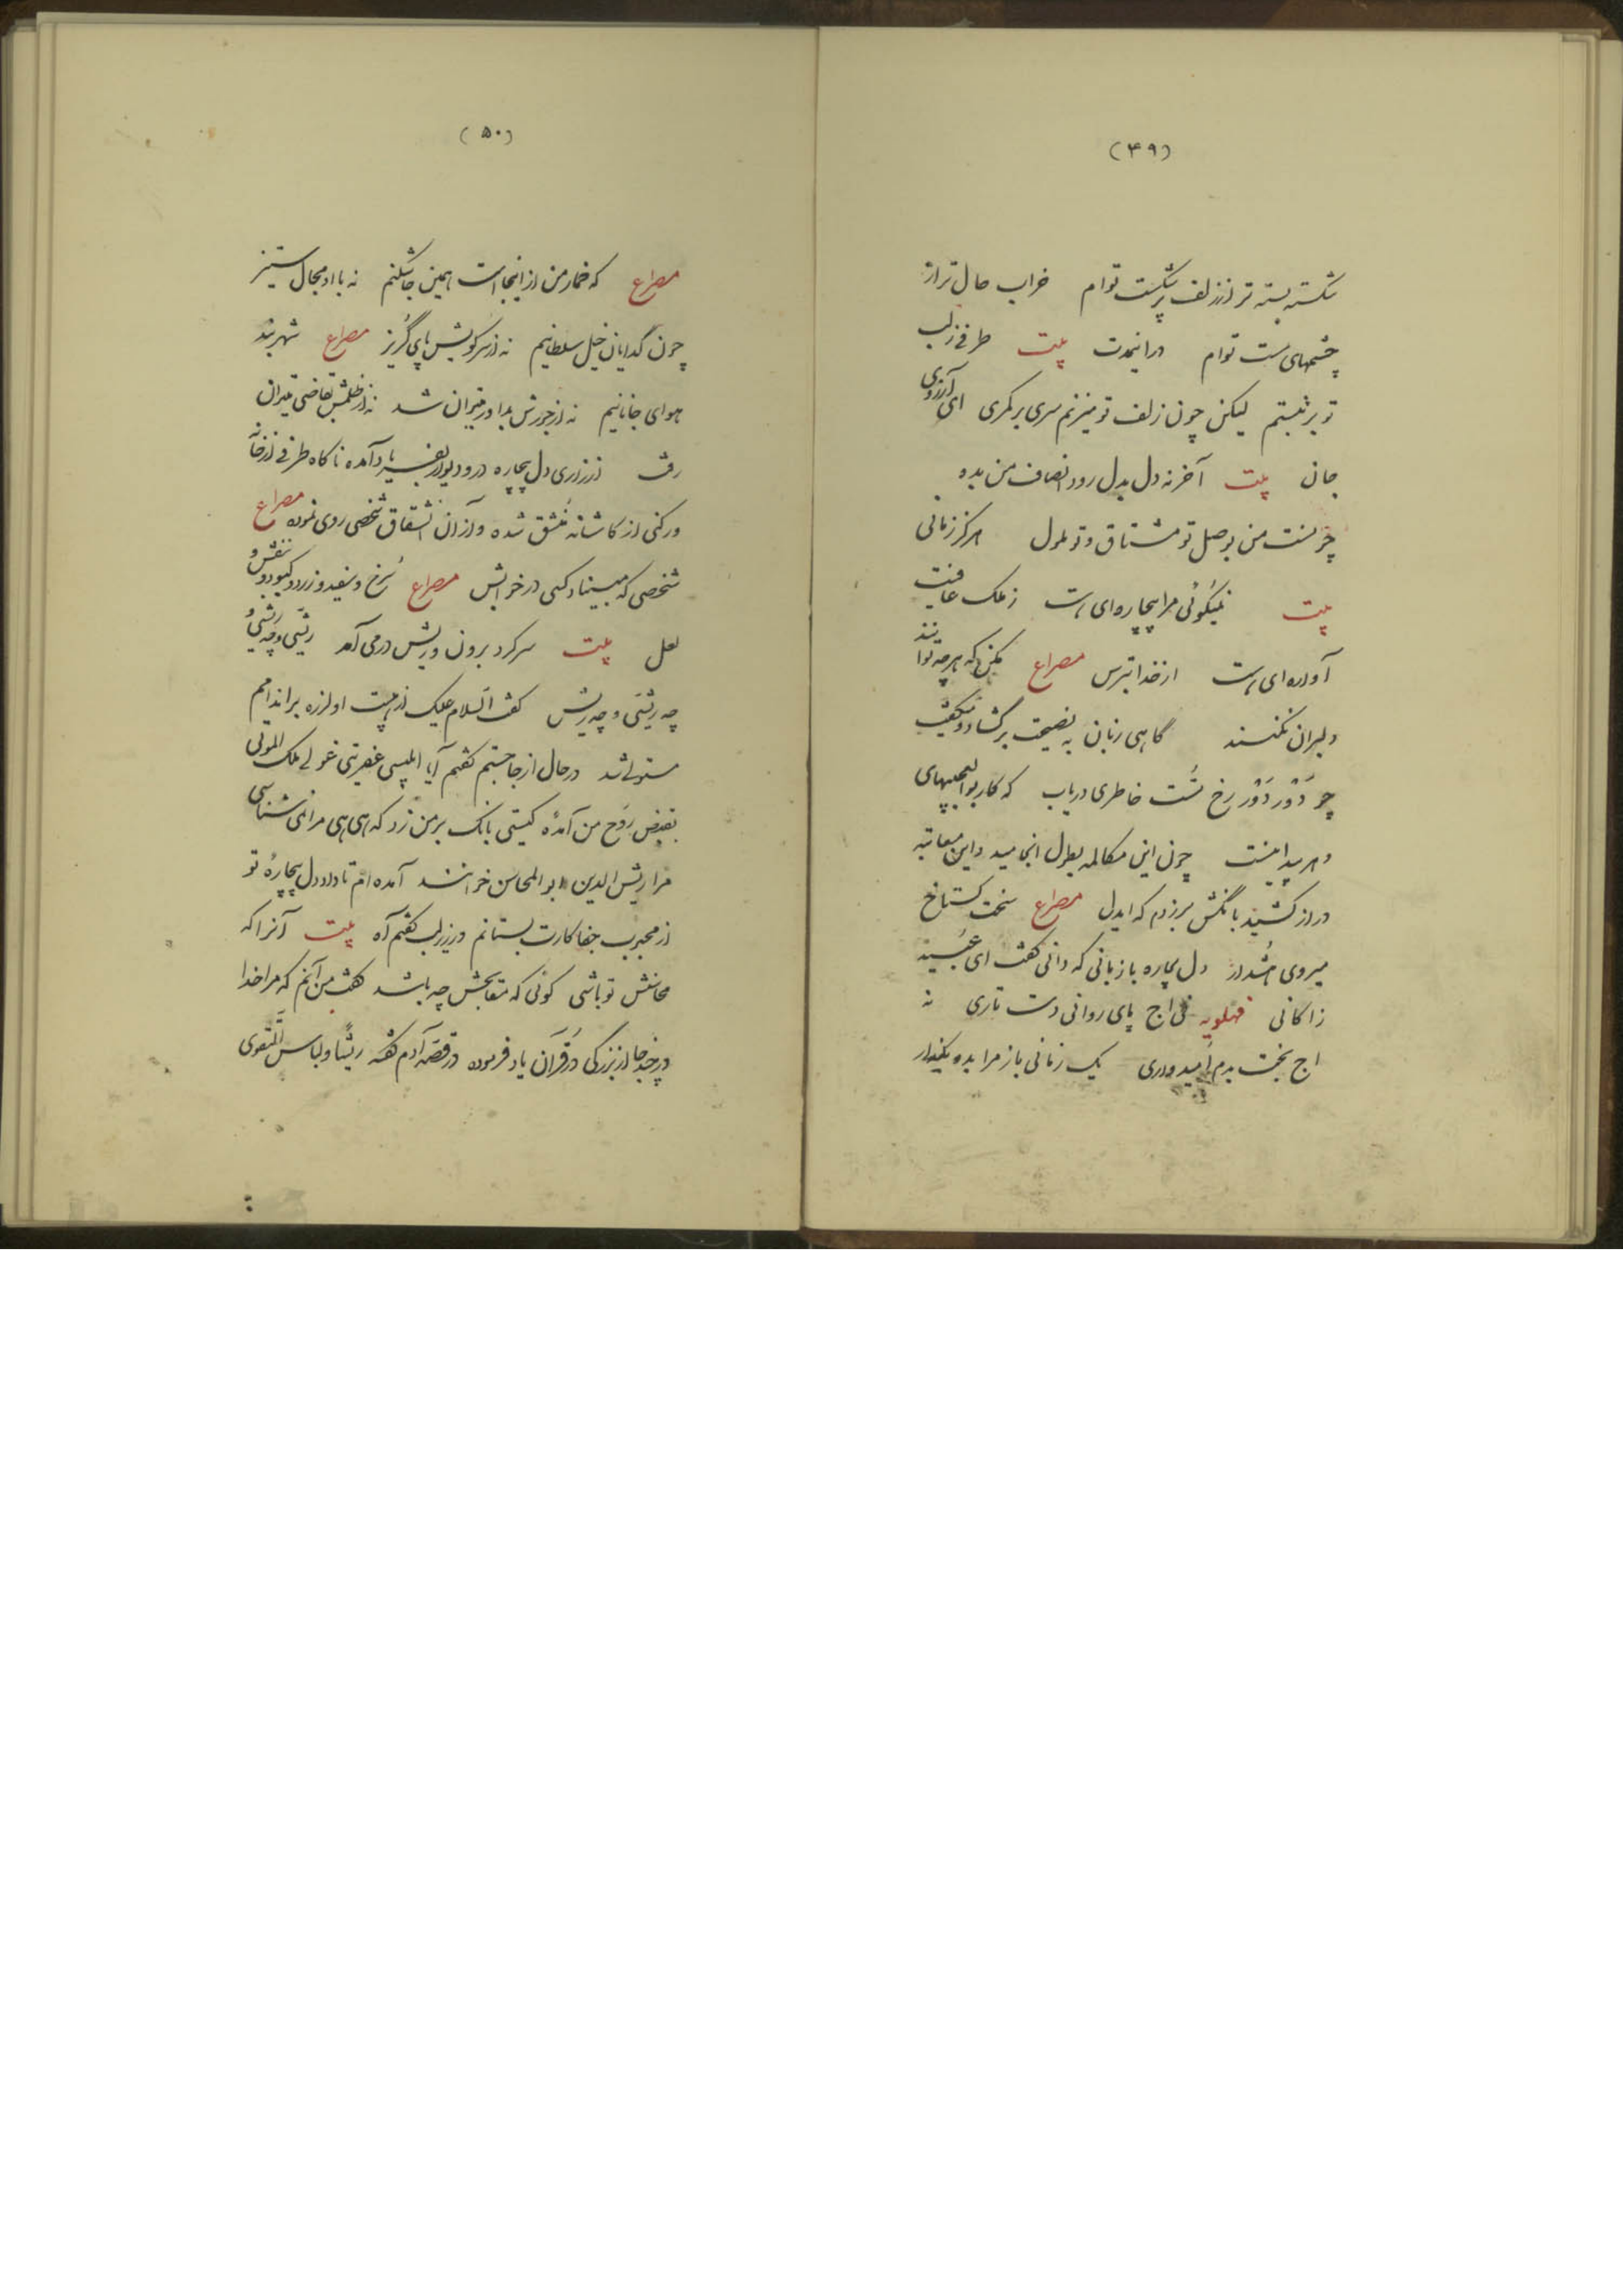 (۴۹)
شکسته بسته تر از زلف پرشکست توام خراب حال تر از
چشمهای مست توام در اینمدت بیت طرفی ز لب
تو بر نبستم لیکن چون زلف تو میزنم سری بر کمری ای آرزوی
جان بیت آخر نه دل بدل رود انصاف من بده
چونست من بوصل تو مشتاق و تو ملول هرگز زمانی
بیت نمیگوئی مرا بیچاره‌ای هست ز ملک عافیت
آواره‌ای هست از خدا بترس مصراع مکن که هرچه توانند
دلبران نکنند گاهی زبان به نصیحت برگشادو میگفت
چو دور دور رخ تست خاطری دریاب که کار بوالعجبیهای
دهر پیدا نیست چون این مکالمه بطول انجامید و این معاتبه
دراز کشید بانگش برزدم که ایدل مصراع سخت گستاخ
میروی هشدار دل بیچاره با زبانی که دانی گفت ای عبید
زاکانی فهلویه نی اج پای روانی دست تاری نه
اج بخت بدم امیدواری یک زمانی باز مرا بدو بگذار
(۵۰)
مصراع که خمار من از اینجاست همین جا شکنم نه با او مجال ستیز
چون گدایان خیل سلطانیم نه از سر کویش پای گریز مصراع شهر بند
هوای جانانیم نه از جورش بداور میتوان شد نه از ظلمش بقاضی میتوان
رفت از زاری دل بیچاره در و دیوار بفریاد آمده ناگاه طرفی از خانه
ورکنی از کاشانه منشق شده و از آن انشقاق شخصی روی نموده مصراع
شخصی که مبیناد کسی در خوابش مصراع سرخ و سفید و زرد و کبود و بنفش و
لعل بیت سر کرد برون و ریش در می آمد ریشی و چه ریشی و
چه ریشی و چه ریش گفت السلام علیک از هیبت او لرزه بر اندامم
مستولی شد در حال از جا جستم گفتم آیا ابلیسی عفریتی غولی ملک الموتی
بقبض روح من آمدۀ کیستی بانگ بر من زد که هی هی مرا نمی شناسی
مرا ریش الدین ابو المحاسن خوانند آمده ام تا داد دل بیچارۀ تو
از محبوب جفا کارت بستانم در زیر لب گفتم آه بیت آنرا که
محاسنش تو باشی گوئی که مقابحش چه باشد گفت من آنم که مرا خدا
در چند جا از بزرگی در قرآن یاد فرموده در قصۀ آدم گفته ریشا و لباس التقوی